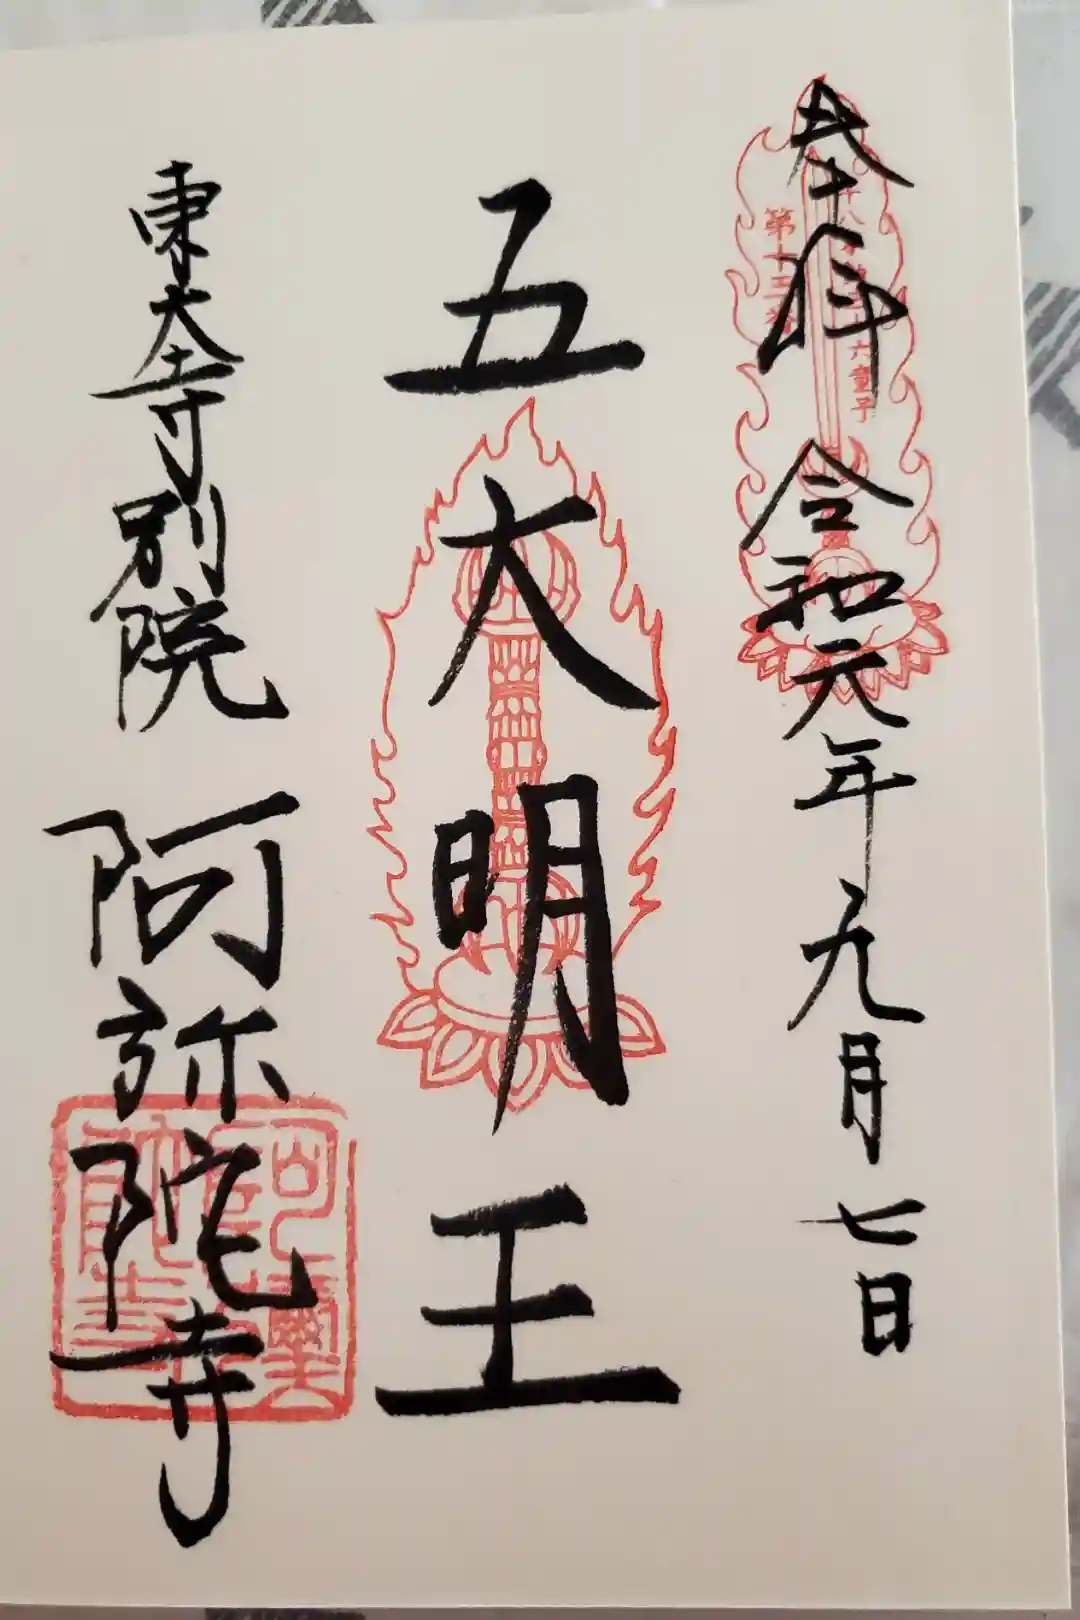 奉拝 令和元年九月七日
第十三番
六童子
五大明王
東大寺別院 阿弥陀寺